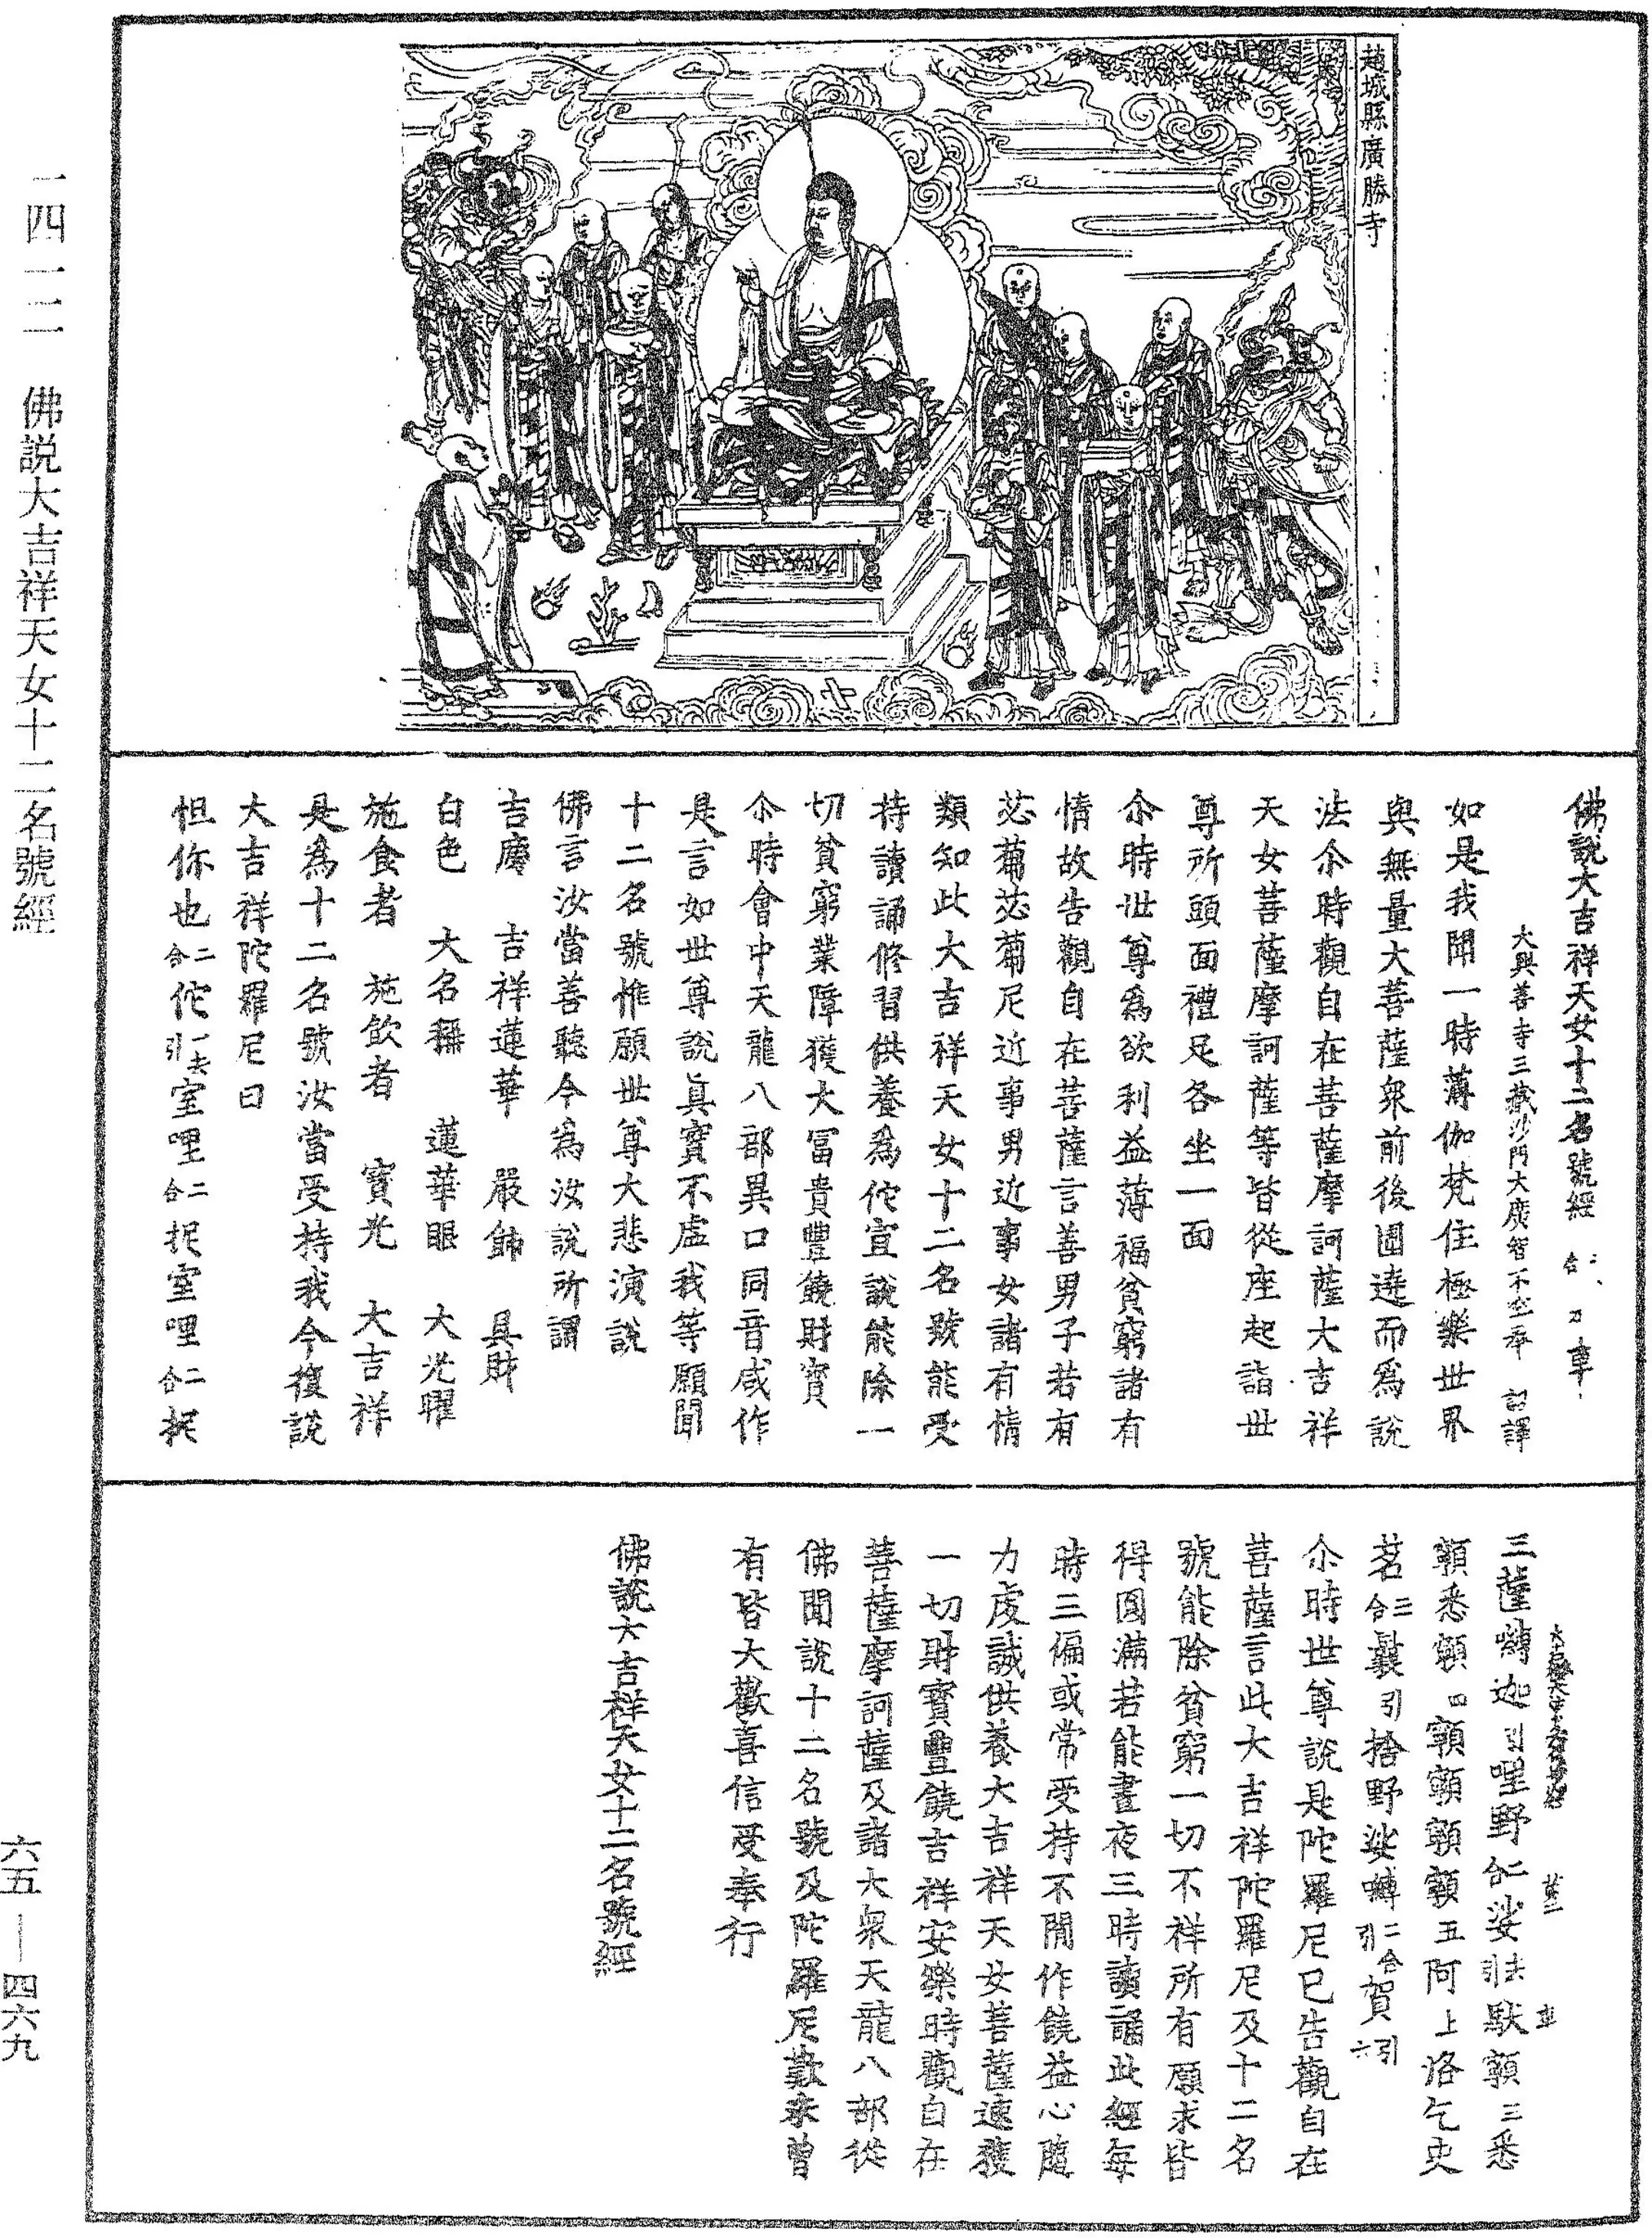 趙城縣廣勝寺
佛説大吉祥天女十二名號經
大興善寺三藏沙門大廣智不空奉 詔譯
如是我聞一時薄伽梵住極樂世界
與無量大菩薩衆前後圍遶而爲説
法尒時觀自在菩薩摩訶薩大吉祥
天女菩薩摩訶薩等皆從座起詣世
尊所頭面禮足各坐一面
尒時世尊爲欲利益薄福貧窮諸有
情故告觀自在菩薩言善男子若有
苾蒭苾蒭尼近事男近事女諸有情
類知此大吉祥天女十二名號能受
持讀誦修習供養爲佗宣說能除一
切貧窮業障獲大冨貴豐饒財寳
尒時會中天龍八部異口同音咸作
是言如世尊說真實不虛我等願聞
十二名號惟願世尊大悲演說
佛言汝當善聽今為汝說所謂
吉慶 吉祥蓮華 嚴飾 具財
白色 大名稱 蓮華眼 大光曜
施食者 施飲者 寳光 大吉祥
是為十二名號汝當受持我今復說
大吉祥陀羅尼曰
怛你也二合佗一去引室哩二合抳室哩二合抳
三薩嚩迦引哩野二合娑去引馱顊三悉
顊悉顊四顊顊顊顊五阿上洛乞史
茗二合曩引捨野娑嚩二合引賀引六
尒時世尊說是陀羅尼已告觀自在
菩薩言此大吉祥陀羅尼及十二名
號能除貧窮一切不祥所有願求皆
得圓滿若能晝夜三時讀誦此經每
時三徧或常受持不閒作饒益心隨
力虔誠供養大吉祥天女菩薩速獲
一切財寳豐饒吉祥安樂時觀自在
菩薩摩訶薩及諸大衆天龍八部從
佛聞說十二名號及陀羅尼歎未曾
有皆大歡喜信受奉行
佛說大吉祥天女十二名號經
一四一三 佛説大吉祥天女十二名號經
六五—四六九